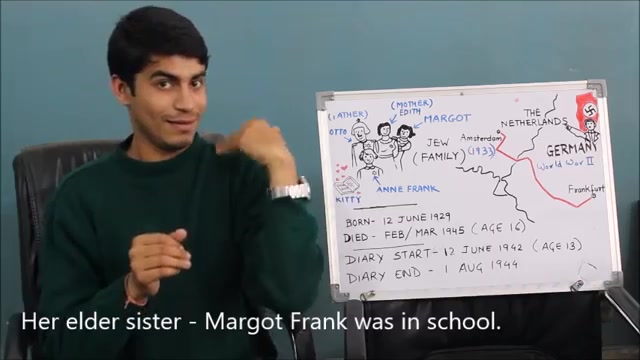 (FATHER)
OTTO
(MOTHER)
EDITH
MARGOT
JEW
(FAMILY)
ANNE FRANK
KITTY
THE
NETHERLANDS
Amsterdam
(1933)
GERMANY
World War II
Frankfurt
BORN - 12 JUNE 1929
DIED - FEB/MAR 1945 (AGE 16)
DIARY START - 12 JUNE 1942 (AGE 13)
DIARY END - 1 AUG 1944
Her elder sister - Margot Frank was in school.